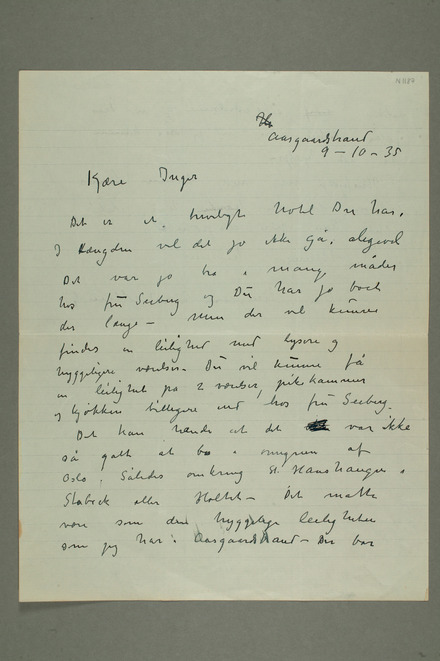 Aasgaardstrand
9 – 10 – 35
Kjære Inger
Det er et hyggeligt Hotel Du har.
I længden vil det jo ikke gå. alligevel
Det var jo bra i mange måder
hos frü Seeberg og Du har jo boet
der længe – Men der vil kunne
findes en leilighed med lysere og
hyggeligere værelser – Du vil kunne få
en leilighet på 2 værelser, pikekammer
og kjøkken billigere end hos frü Seeberg.
Det kan hænde at det var ikke
så galt at bo i omegnen af
Oslo. Således omkring St. Hanshaugen i
Stabæk eller Holtet – Det måtte
være som den hyggelige leilighet
som jeg har i Aasgaardstrand – Du bor